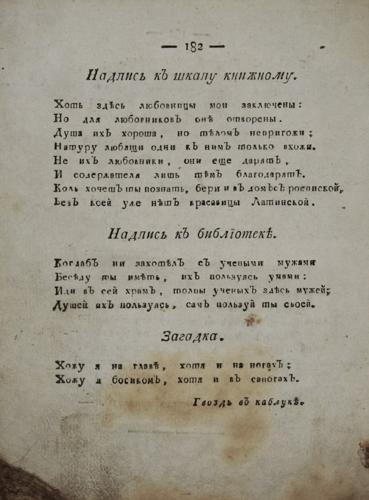 — 182 —
Надпись къ шкапу книжному.
Хоть здѣсь любовницы мои заключены:
Но для любовниковъ онѣ отворены.
Душа ихъ хороша, но тѣломъ непригожи;
Натуру любящи одни къ нимъ только вхожи.
Не ихъ любовники, они еще дарятъ,
И содержателя лишь тѣмъ благодарятъ.
Коль хочешь ты познать, бери и въ домъ съ росписной,
Безъ коей уже нѣтъ красавицы Латинской.
Надпись къ библіотекѣ.
Когдабъ ни захотѣлъ съ учеными мужами
Бесѣду ты имѣть, ихъ пользуясь умами:
Иди въ сей храмъ, толпы ученыхъ здѣсь мужей;
Душей ихъ пользуясь, самъ пользуй ты своей.
Загадка.
Хожу я на главѣ, хотя и на ногахъ;
Хожу я босикомъ, хотя и въ сапогахъ.
Гвоздь въ каблукѣ.